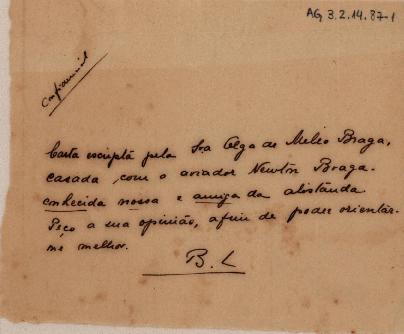 AG 3.2.14.87-1
Confidencial
Carta escripta pela Sra Olga de Mello Braga,
casada com o aviador Newton Braga.
conhecida nossa e amiga da alistanda
Peço a sua opinião, afim de poder orientar-
me melhor.
B. L